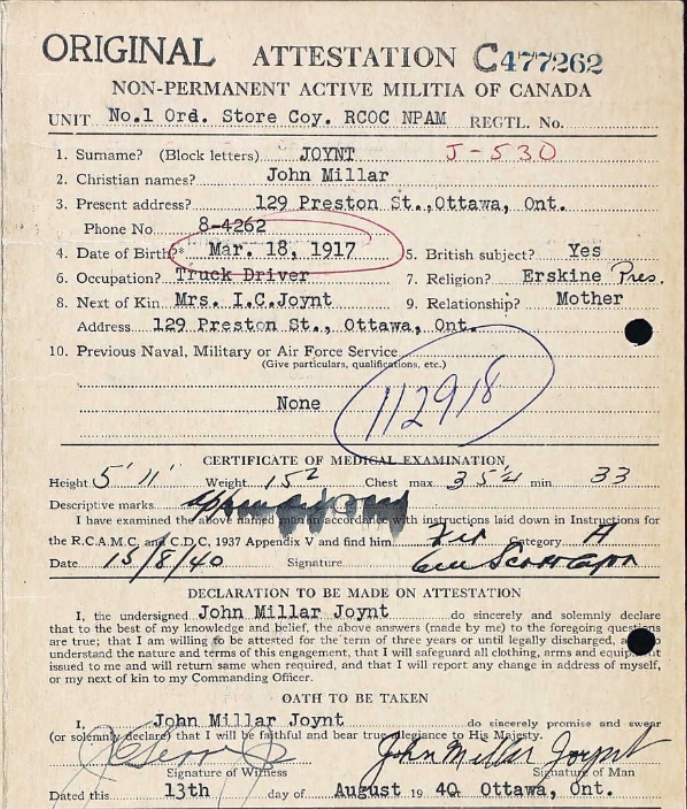 ORIGINAL ATTESTATION C477262
NON-PERMANENT ACTIVE MILITIA OF CANADA
UNIT No.1 Ord. Store Coy. RCOC NPAM REGTL. No.
1. Surname? (Block letters) JOYNT J-530
2. Christian names? John Millar
3. Present address? 129 Preston St., Ottawa, Ont.
Phone No. 8-4262
4. Date of Birth?* Mar. 18, 1917 5. British subject? Yes
6. Occupation? Truck Driver 7. Religion? Erskine Pres.
8. Next of Kin Mrs. I.C.Joynt 9. Relationship? Mother
Address 129 Preston St., Ottawa, Ont.
10. Previous Naval, Military or Air Force Service
(Give particulars, qualifications, etc.)
None
112918
CERTIFICATE OF MEDICAL EXAMINATION
Height 5' 11" Weight 152 Chest max 35½ min 33
Descriptive marks
I have examined the above named man in accordance with instructions laid down in Instructions for
the R.C.A.M.C. and C.D.C. 1937 Appendix V and find him Fit Category A
Date 13/8/40 Signature
DECLARATION TO BE MADE ON ATTESTATION
I, the undersigned John Millar Joynt do sincerely and solemnly declare
that to the best of my knowledge and belief, the above answers (made by me) to the foregoing questions
are true; that I am willing to be attested for the term of three years or until legally discharged,
understand the nature and terms of this engagement, that I will safeguard all clothing, arms and equipment
issued to me and will return same when required, and that I will report any change in address of myself,
or my next of kin to my Commanding Officer.
OATH TO BE TAKEN
I, John Millar Joynt do sincerely promise and swear
(or solemnly declare) that I will be faithful and bear true allegiance to His Majesty.
John Millar Joynt
Signature of Witness Signature of Man
Dated this 13th day of August 1940 Ottawa, Ont.